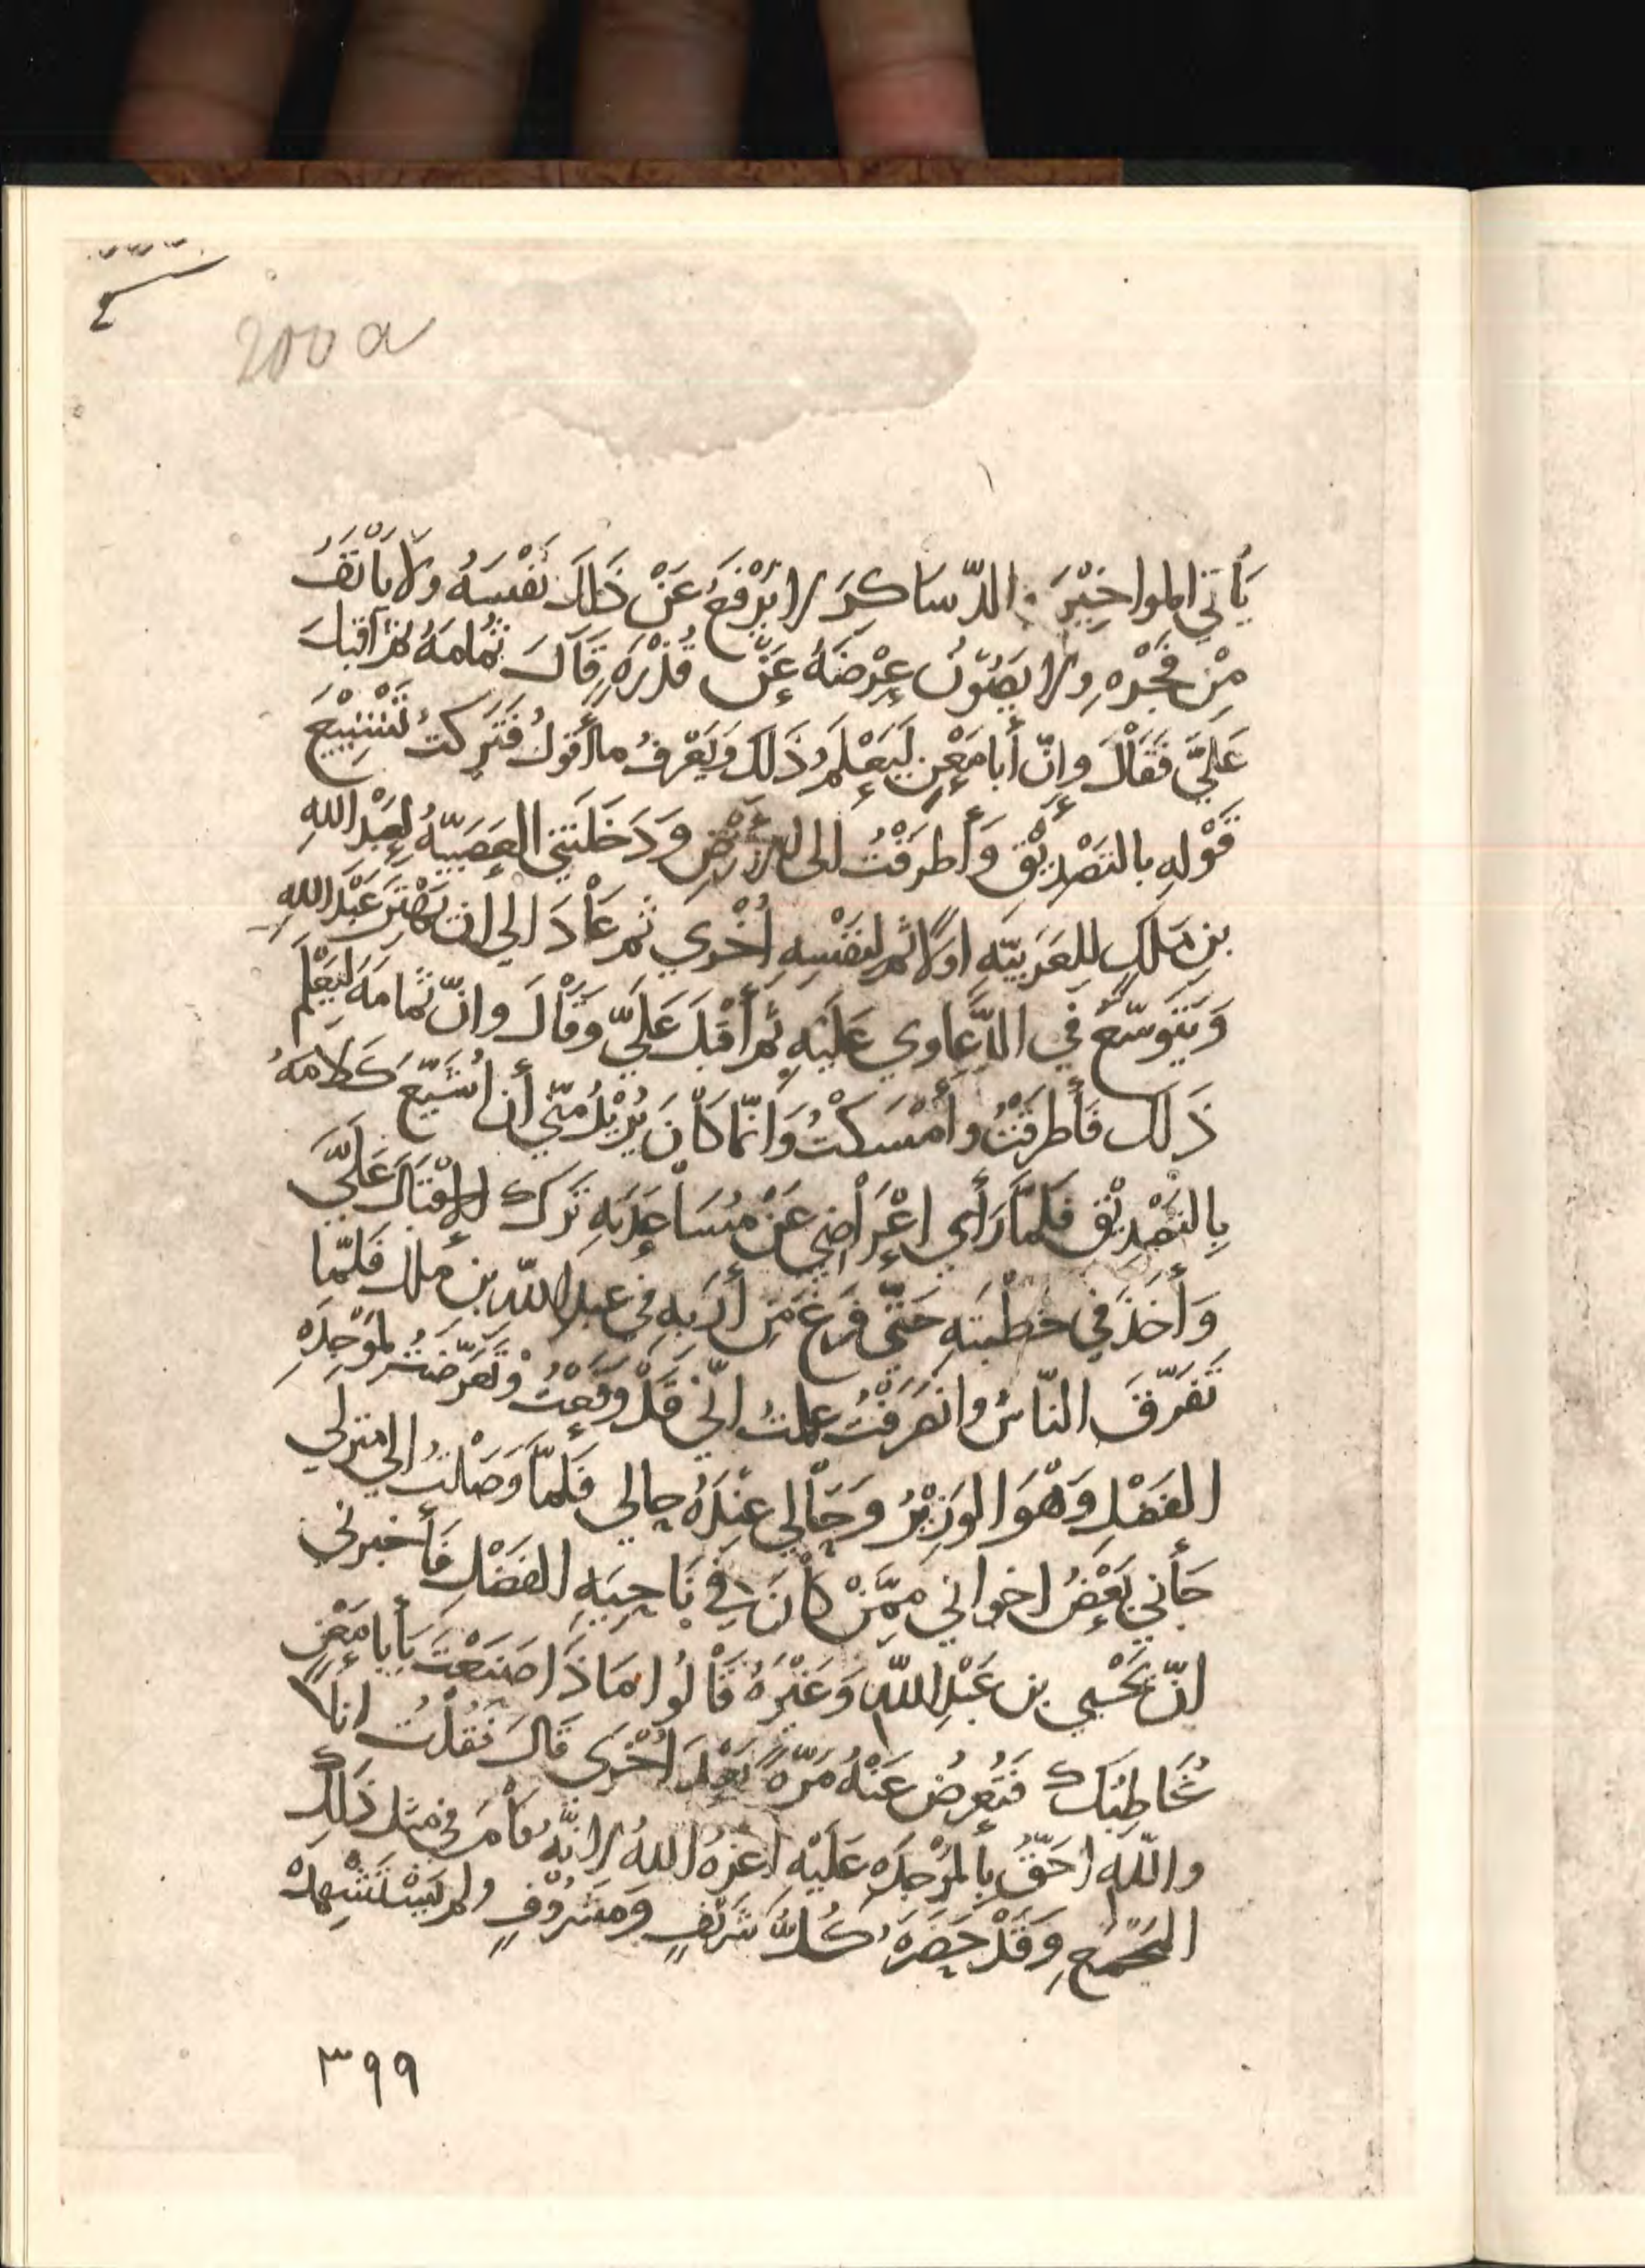 200 a
يَأتي المواخِيْرَ والدّسَاكِرَ لا يَرْفَعُ عَنْ ذَلِكَ نَفْسَهُ ولا يَأنَفُ
مِنْ ولا يَصُوْنُ عِرْضَهُ عَنْ قَذْرِهِ قَالَ ثُمَامَةُ ثم أقبلَ
عَليَّ فَقَالَ وإنّ أبا مَعْنٍ ليَعْلَمُ ذَلكَ وَيَعْرفُ ما أقولُ فَتَركتُ تَشْيِيْعَ
قَوْلهِ بالتَصْدِيْقِ وَأَطرَقْتُ إلى الأرْضِ وَدَخَلَتني العَصَبيّةُ لِعَبْدِ اللهِ
بنِ مَلكٍ للعَرَبيّةِ اولاً ثم لنفْسِهِ أُخْري ثم عَادَ الي ان عَبْدَ اللهِ
وَيَتَوسّعُ في الدَّعاوي عَلَيْهِ ثم أقْبَلَ عَلَيَّ وقَالَ وانّ ثمامَةَ ليَعْلَم
ذَلك فَأطرَقْتُ وأمْسَكْتُ وَانّما كَانَ يُرِيْدُ منّي أن أُشَيّعَ كَلامَهُ
بِالتَصْدِيْقِ فَلمّا رَأي اعْرَاضِي عَنْ مُسَاعَدَتِهِ تَرَكَ الإقْبَالَ عَلَيَّ
وَأَخَذَ في خُطْبَتِهِ حَتّي فَرَغَ مِن أَرَبِهِ في عبد اللهِ بن ملك فَلَمّا
تَفَرّقَ النّاسُ وانصَرَفْتُ علمتُ انّي قَدْ وَقَعْتُ وَتَعَرّضتُ لمَوْجِدَةِ
الفَضْلِ وَهْوَ الوَزِيْرُ وَحَالي عِنْدَهُ حالي فَلَمّا وَصَلْتُ الي منزلي
جَأني بَعْضُ اخواني مِمَّنْ كانَ في نَاحِيَةِ الفَضْلِ فَأخبرني
انّ يَحْيي بن عَبْدِ اللهِ وَغَيْرَهُ قَالُوا مَاذَا صَنَعْتَ يَأبا مَعْنٍ
يُخَاطِبُكَ فَتُعرِضُ عَنْهُ مَرّةً بَعْدَ أُخْرَي قَالَ فَقُلْتُ انا
واللهِ احَقُّ بِالمَوْجِدَةِ عَلَيْهِ اعزهُ اللهُ لانّهُ قَامَ في مثل ذَلِكَ
المَجْمَعِ وَقَدْ حَضَرَهُ كُلُّ شَرِيْفٍ وَمَشْرُوْفٍ ولم يَسْتَشْهِدْ
٣٩٩